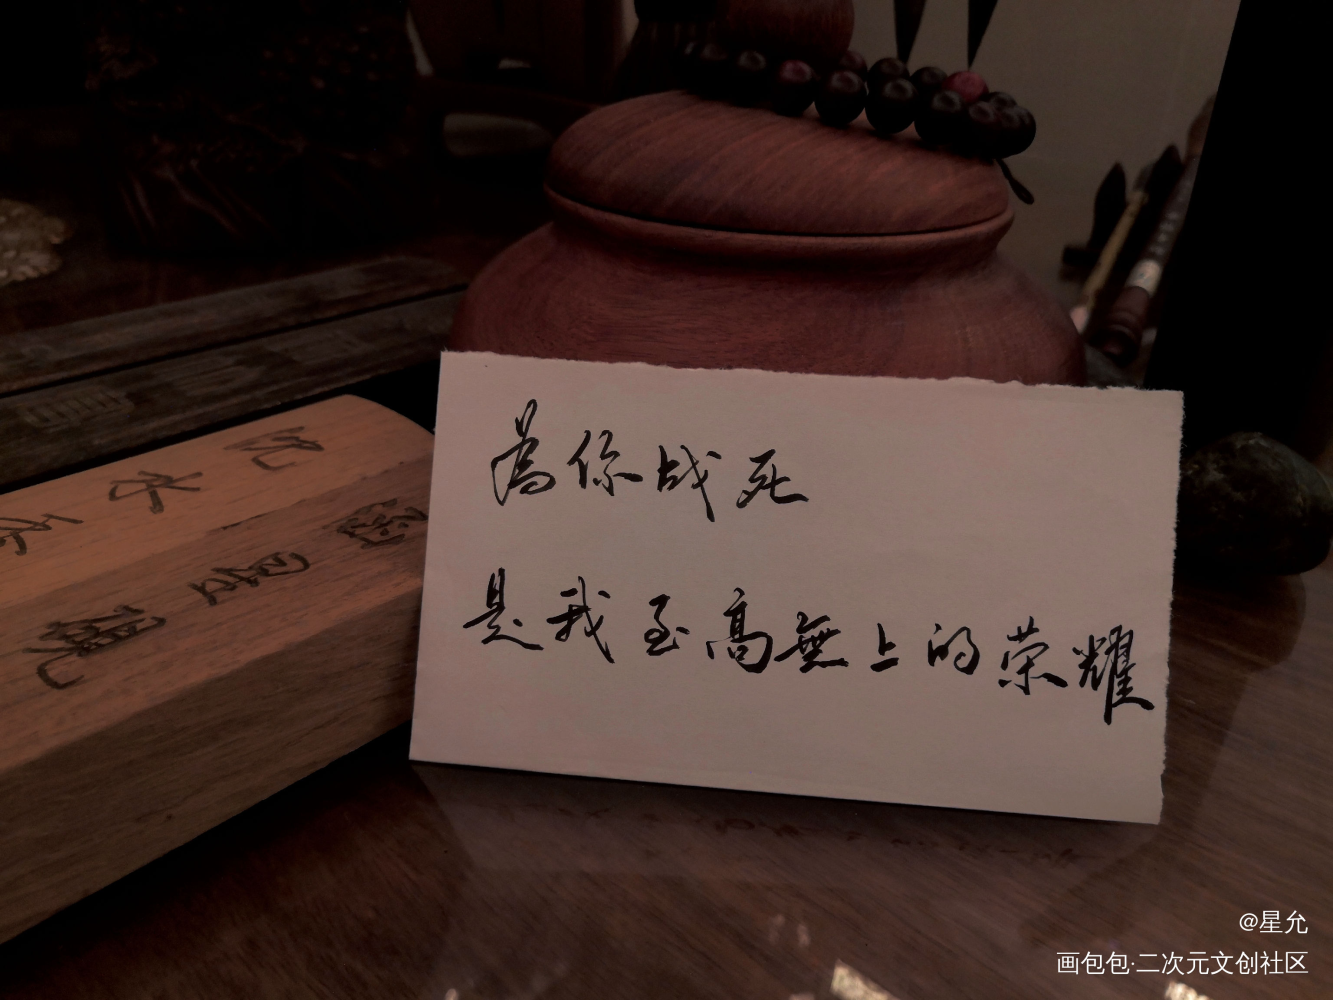 為你战死
是我至高無上的荣耀
@星允
画包包·二次元文创社区